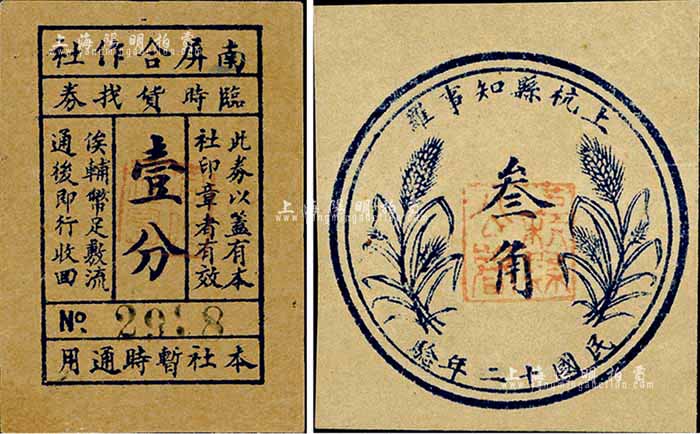 南屏合作社
臨時貨找券
此券以蓋有本
社印章者有效
壹分
俟輔幣足敷流
通後即行收回
No. 2998
本社暫時通用
上杭縣知事羅
叁角
民國十二年駼
上海陽明拍賣
www.ymauction.com